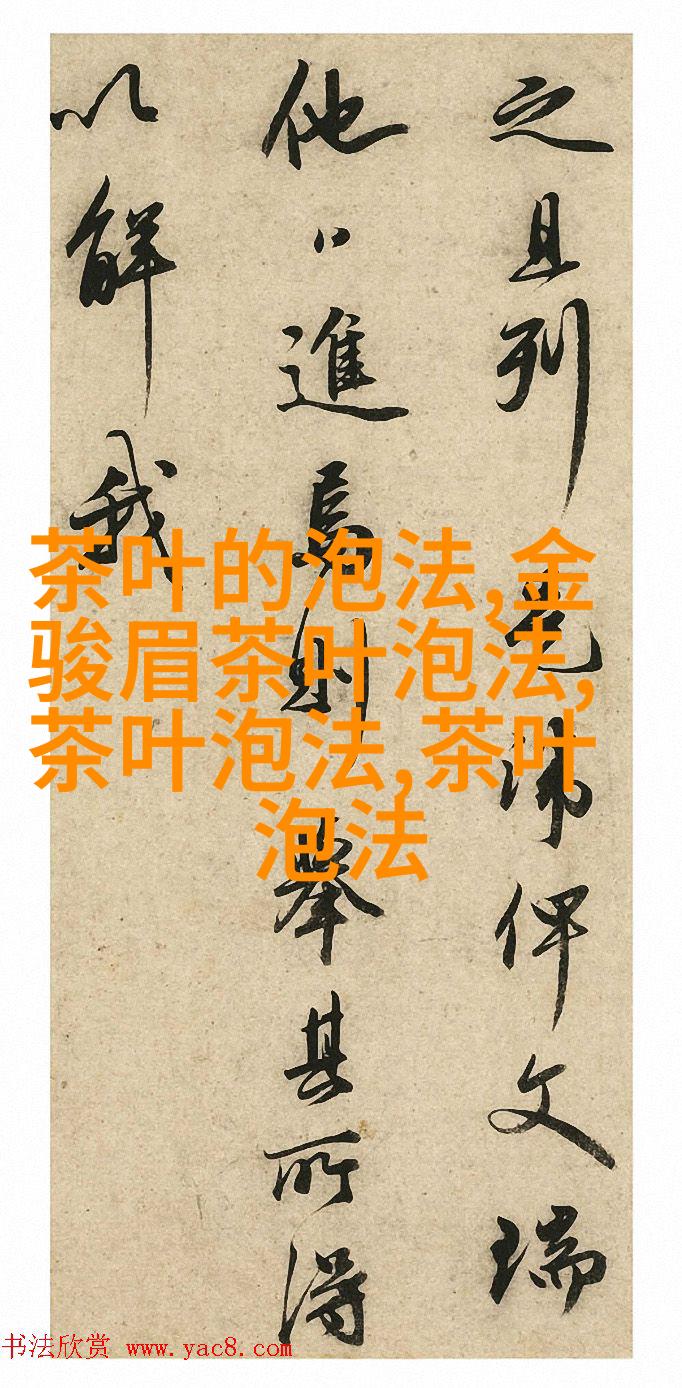 之且列沛俾文瑞
他日進焉則舉其所得
以解我
茶叶的泡法,金
骏眉茶叶泡法,
茶叶泡法,茶叶
泡法
书法欣赏 www.yac8.com